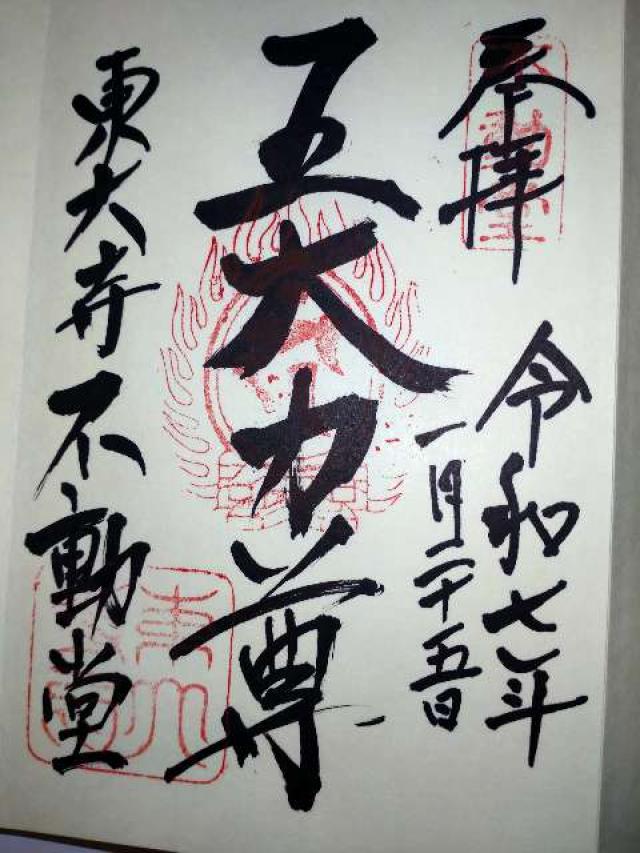 奉拝
令和七年
一月二十五日
五大力尊
東大寺不動堂